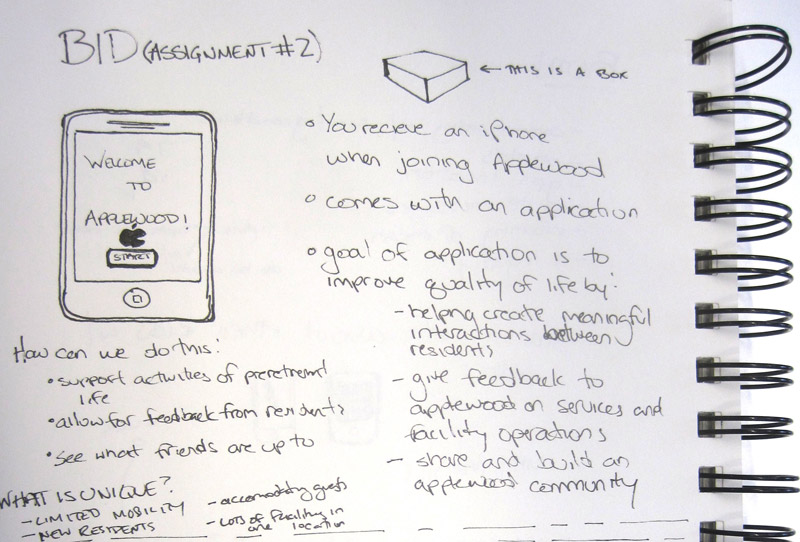 BID (ASSIGNMENT #2)
← THIS IS A BOX
WELCOME
TO
APPLEWOOD!
START
• You recieve an iPhone
when joining Applewood
• comes with an application
• goal of application is to
improve quality of life by:
- helping create meaningful
interactions between
residents
- give feedback to
applewood on services and
facility operations
- share and build an
applewood community
How can we do this:
• support activities of preretiremt
life
• allow for feedback from residents
• see what friends are up to
WHAT IS UNIQUE?
- LIMITED MOBILITY
- NEW RESIDENTS
- accomodating guests
- LOTS of facility in
one location